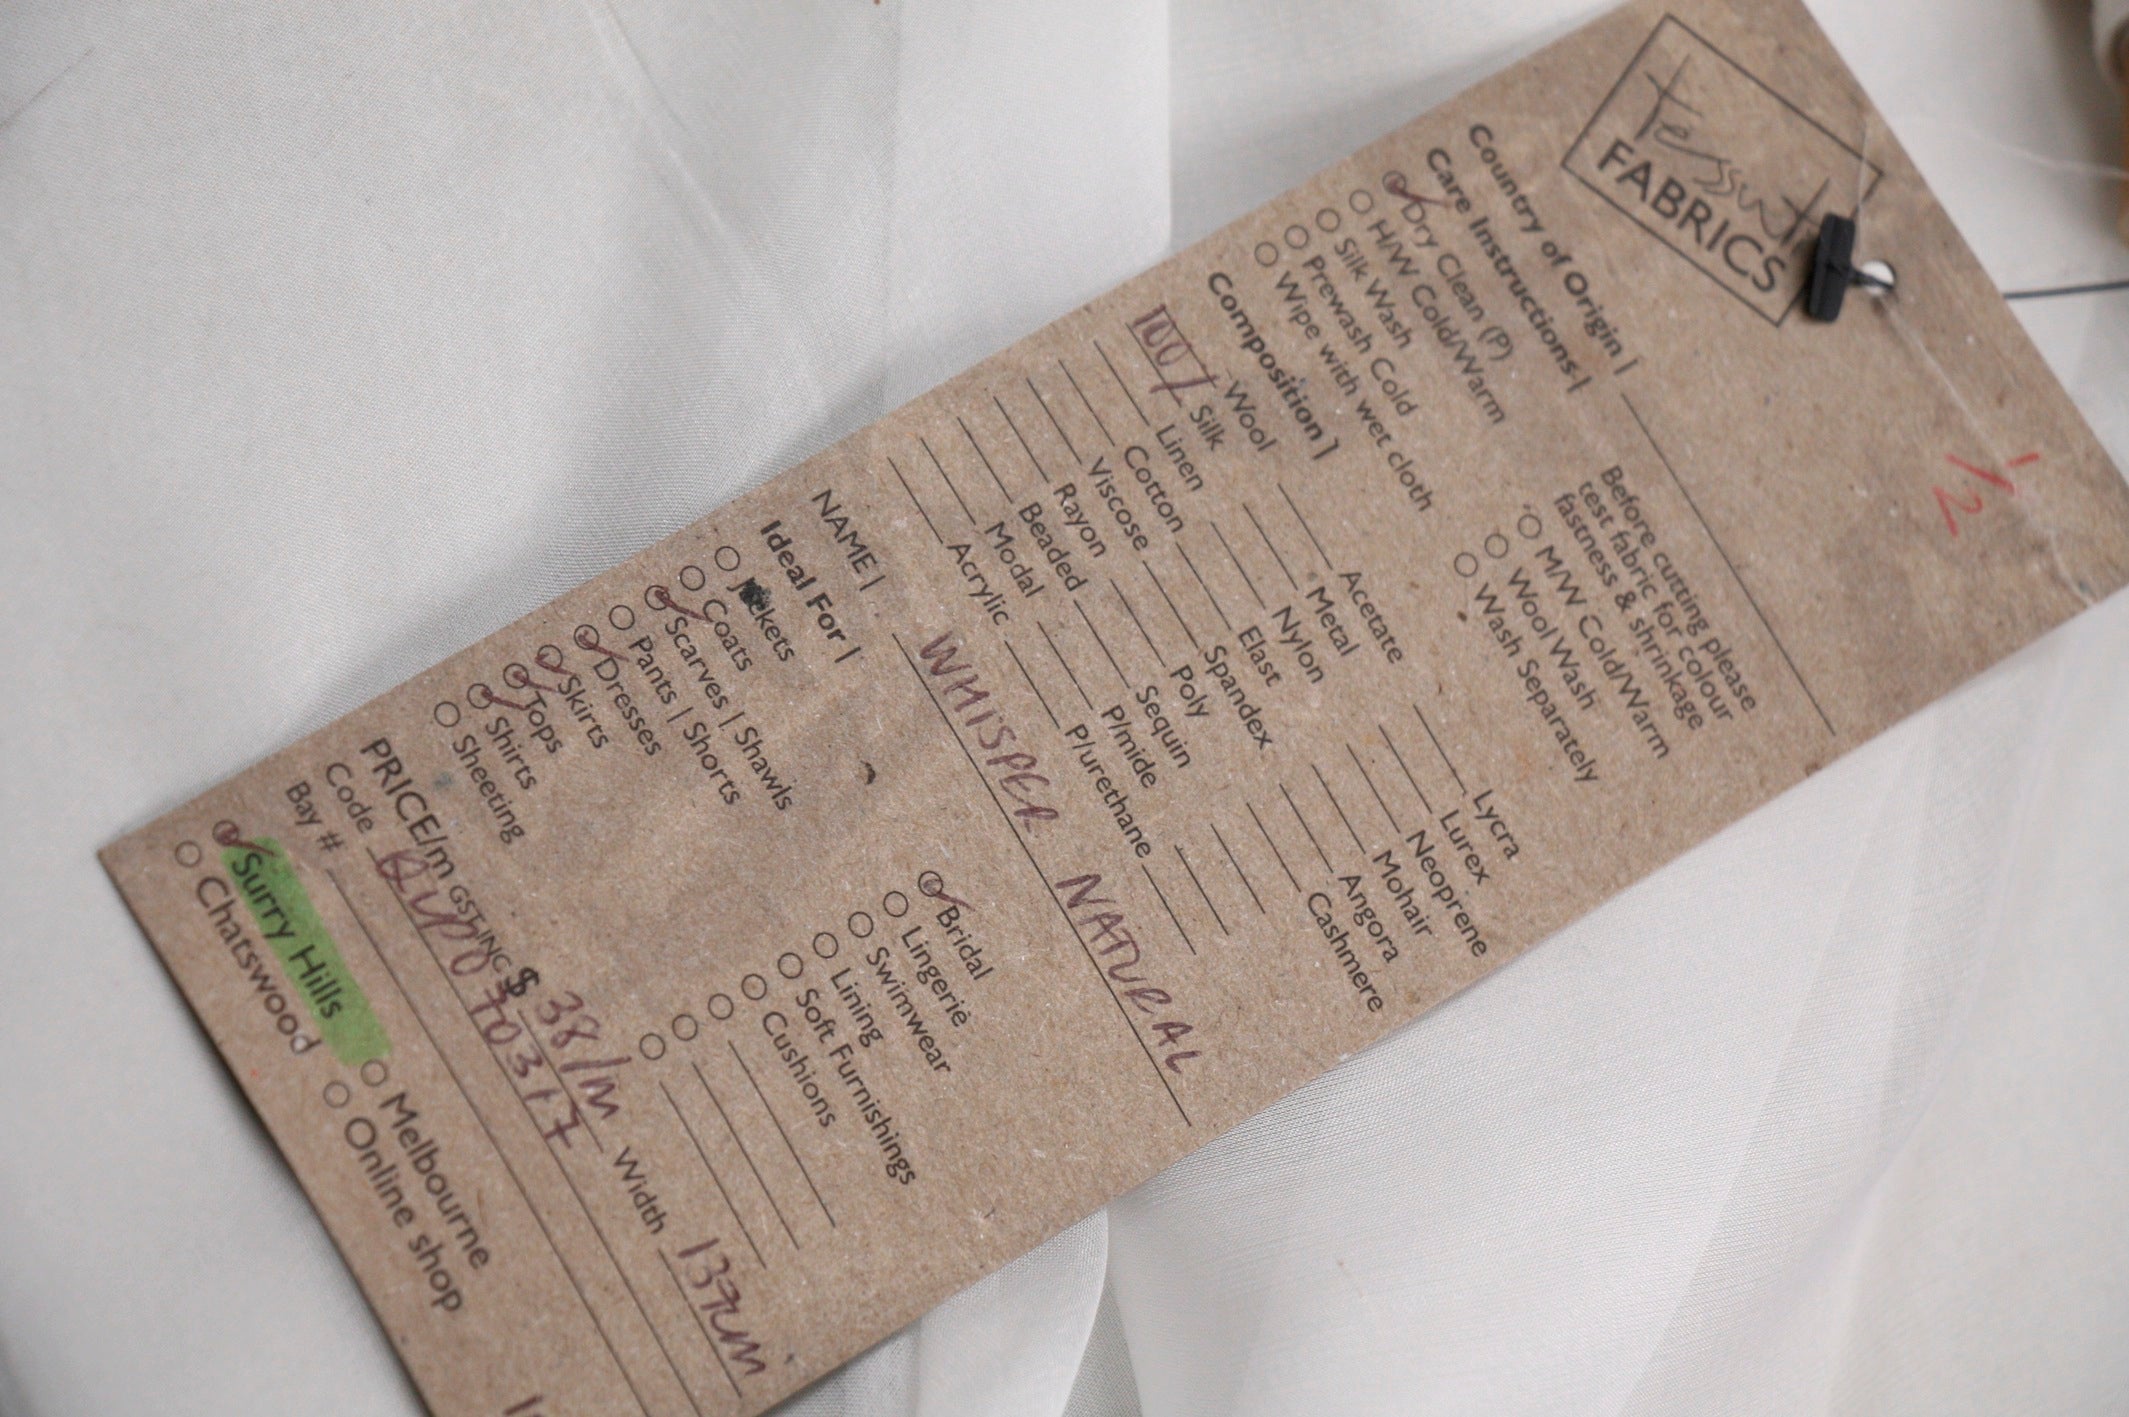 Tessuti
FABRICS
1/2
Country of Origin |
Care Instructions |
Dry Clean (P)
H/W Cold/Warm
Silk Wash
Prewash Cold
Wipe with wet cloth
Before cutting please
test fabric for colour
fastness & shrinkage
M/W Cold/Warm
Wool Wash
Wash Separately
Composition |
Wool Acetate Lycra
100% Silk Metal Lurex
Linen Nylon Neoprene
Cotton Elast Mohair
Viscose Spandex Angora
Rayon Poly Cashmere
Beaded Sequin
Modal P/mide
Acrylic P/urethane
NAME | WHISPER NATURAL
Ideal For |
Jackets
Coats
Scarves | Shawls
Pants | Shorts
Dresses
Skirts
Tops
Shirts
Sheeting
Bridal
Lingerie
Swimwear
Lining
Soft Furnishings
Cushions
PRICE/m GST INC $ 38/m Width 137cm
Code 70317
Bay #
Surry Hills Melbourne
Chatswood Online shop